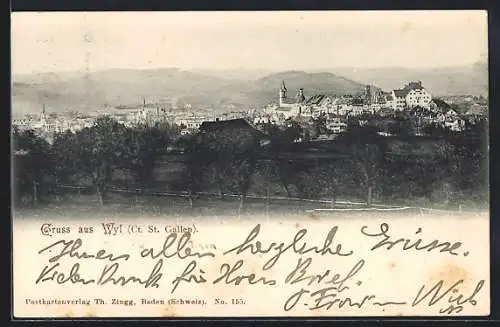 Gruss aus Wyl (Ct. St. Gallen).
Ihnen Allen herzliche Grüsse.
Vielen Dank für Ihren Brief.
Postkartenverlag Th. Zingg, Baden (Schweiz). No. 155.